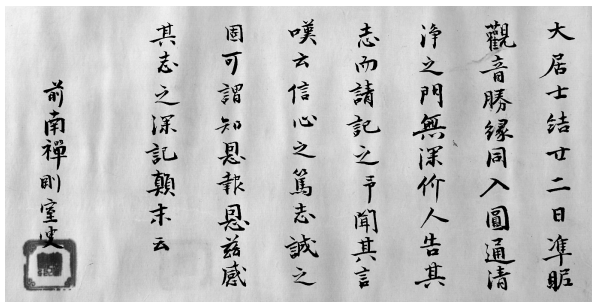 大居士結廿二日準眤
觀音勝緣同入圓通清
淨之門無深价人告其
志而請記之予聞其言
嘆云信心之篤志誠之
固可謂知恩報恩茲感
其志之深記顛末云
前南禪剛室叟